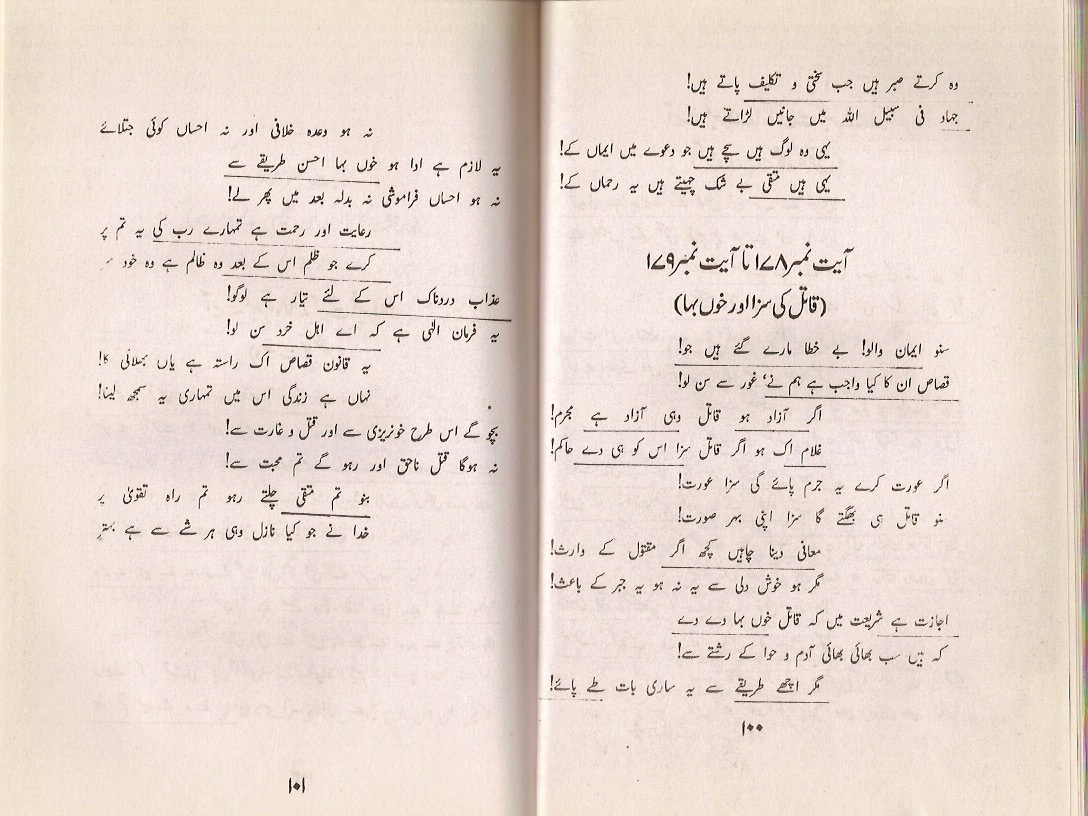 وہ کرتے صبر ہیں جب سختی و تکلیف پاتے ہیں!
جہاد فی سبیل اللہ میں جانیں لڑاتے ہیں!
یہی وہ لوگ ہیں سچے ہیں جو دعوے میں ایماں کے!
یہی ہیں متقی بے شک چہیتے ہیں یہ رحماں کے!
آیت نمبر ۱۷۸ تا آیت نمبر ۱۷۹
(قاتل کی سزا اور خوں بہا)
سنو ایمان والو! بے خطا مارے گئے ہیں جو!
قصاص ان کا کیا واجب ہے ہم نے، غور سے سن لو!
اگر آزاد ہو قاتل وہی آزاد ہے مجرم!
غلام اک ہو اگر قاتل سزا اس کو ہی دے حاکم!
اگر عورت کرے یہ جرم پائے گی سزا عورت!
سنو قاتل ہی بھگتے گا سزا اپنی بہر صورت!
معافی دینا چاہیں کچھ اگر مقتول کے وارث!
مگر ہو خوش دلی سے یہ نہ ہو یہ جبر کے باعث!
اجازت ہے شریعت میں کہ قاتل خوں بہا دے دے
کہ ہیں سب بھائی بھائی آدم و حوا کے رشتے سے!
مگر اچھے طریقے سے یہ ساری بات طے پائے!
۱۰۰
نہ ہو وعدہ خلافی اور نہ احساں کوئی جتلائے
یہ لازم ہے ادا ہو خوں بہا احسن طریقے سے
نہ ہو احساں فراموشی نہ بدلہ بعد میں پھر لے!
رعایت اور رحمت ہے تمہارے رب کی یہ تم پر
کرے جو ظلم اس کے بعد وہ ظالم ہے وہ خود سر
عذاب دردناک اس کے لئے تیار ہے لوگو!
یہ فرمان الٰہی ہے کہ اے اہل خرد سن لو!
یہ قانون قصاص اک راستہ ہے یاں بھلائی کا!
نہاں ہے زندگی اس میں تمہاری یہ سمجھ لینا!
بچو گے اس طرح خونریزی سے اور قتل و غارت سے!
نہ ہوگا قتل ناحق اور رہو گے تم محبت سے!
بنو تم متقی چلتے رہو تم راہ تقویٰ پر
خدا نے جو کیا نازل وہی ہر شے سے ہے بہتر
۱۰۱